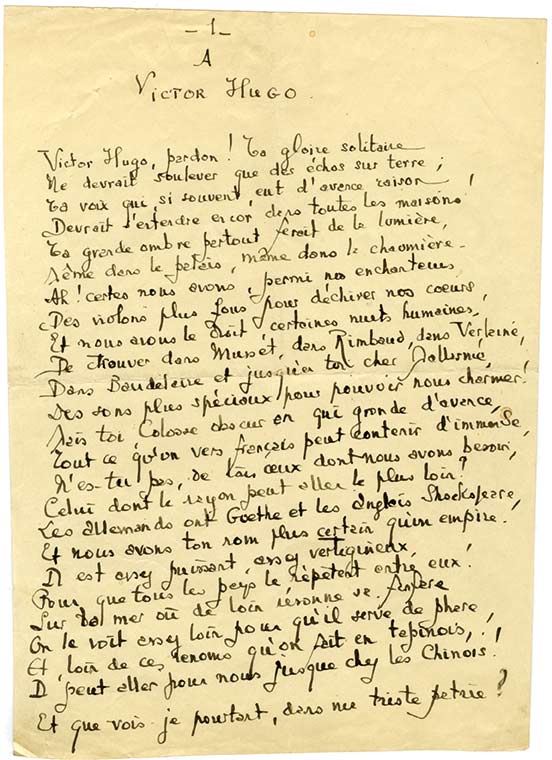 - 1 -
A
VICTOR HUGO.
Victor Hugo, pardon ! Ta gloire solitaire
Ne devrait soulever que des échos sur terre ;
Ta voix qui, si souvent, eut d'avance raison
Devrait s'entendre encor dans toutes les maisons !
Ta grande ombre partout ferait de la lumière,
Même dans le palais, même dans la chaumière -
Ah ! certes nous avons, parmi nos enchanteurs,
Des violons plus fous pour déchirer nos coeurs,
Et nous avons le droit, certaines nuits humaines,
De trouver dans Musset, dans Rimbaud, dans Verlaine,
Dans Baudelaire et jusqu'en ton cher
Des sons plus spéciaux pour pouvoir nous charmer !
Mais toi, Colosse obscur en qui gronde d'avance,
Tout ce qu'un vers français peut contenir d'immense,
N'es-tu pas, de tous ceux dont nous avons besoin,
Celui dont le rayon peut aller le plus loin ?
Les allemands ont Goethe et les anglais Shackspeare,
Et nous avons ton nom plus certain qu'un empire !
Il est assez puissant, assez vertigineux,
Pour que tous les pays le répètent entre eux !
Sur la mer où de loin résonne sa
On le voit assez loin pour qu'il serve de phare,
Et, loin de ces renoms qu'on fait en tapinois,
Il peut aller pour nous jusque chez les Chinois !
Et que vois-je pourtant, dans ma triste patrie ?